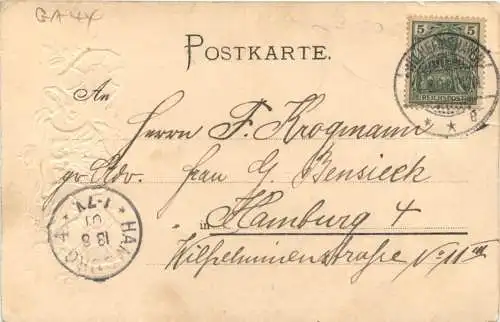 GA 4x
POSTKARTE.
5 5
REICHSPOST
An
Herrn F. Krogmann
pr Adr. frau G. Bensieck
in Hamburg 4
Wilhelminenstrasse No 11
HAMBURG 4
13 8
01
1-7V